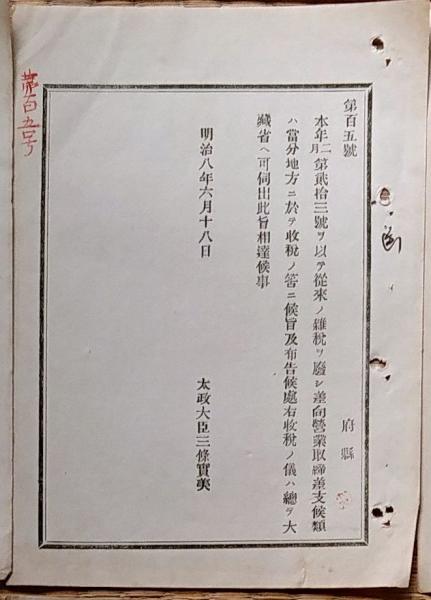 第百五號
府縣
本年二月第貳拾三號ヲ以テ從來ノ雜稅ヲ廢シ差向營業取締差支候類
ハ當分地方ニ於テ收稅ノ筈ニ候旨及布告候處右收稅ノ儀ハ總テ大
藏省ヘ可伺出此旨相達候事
明治八年六月十八日
太政大臣三條實美
第百五号